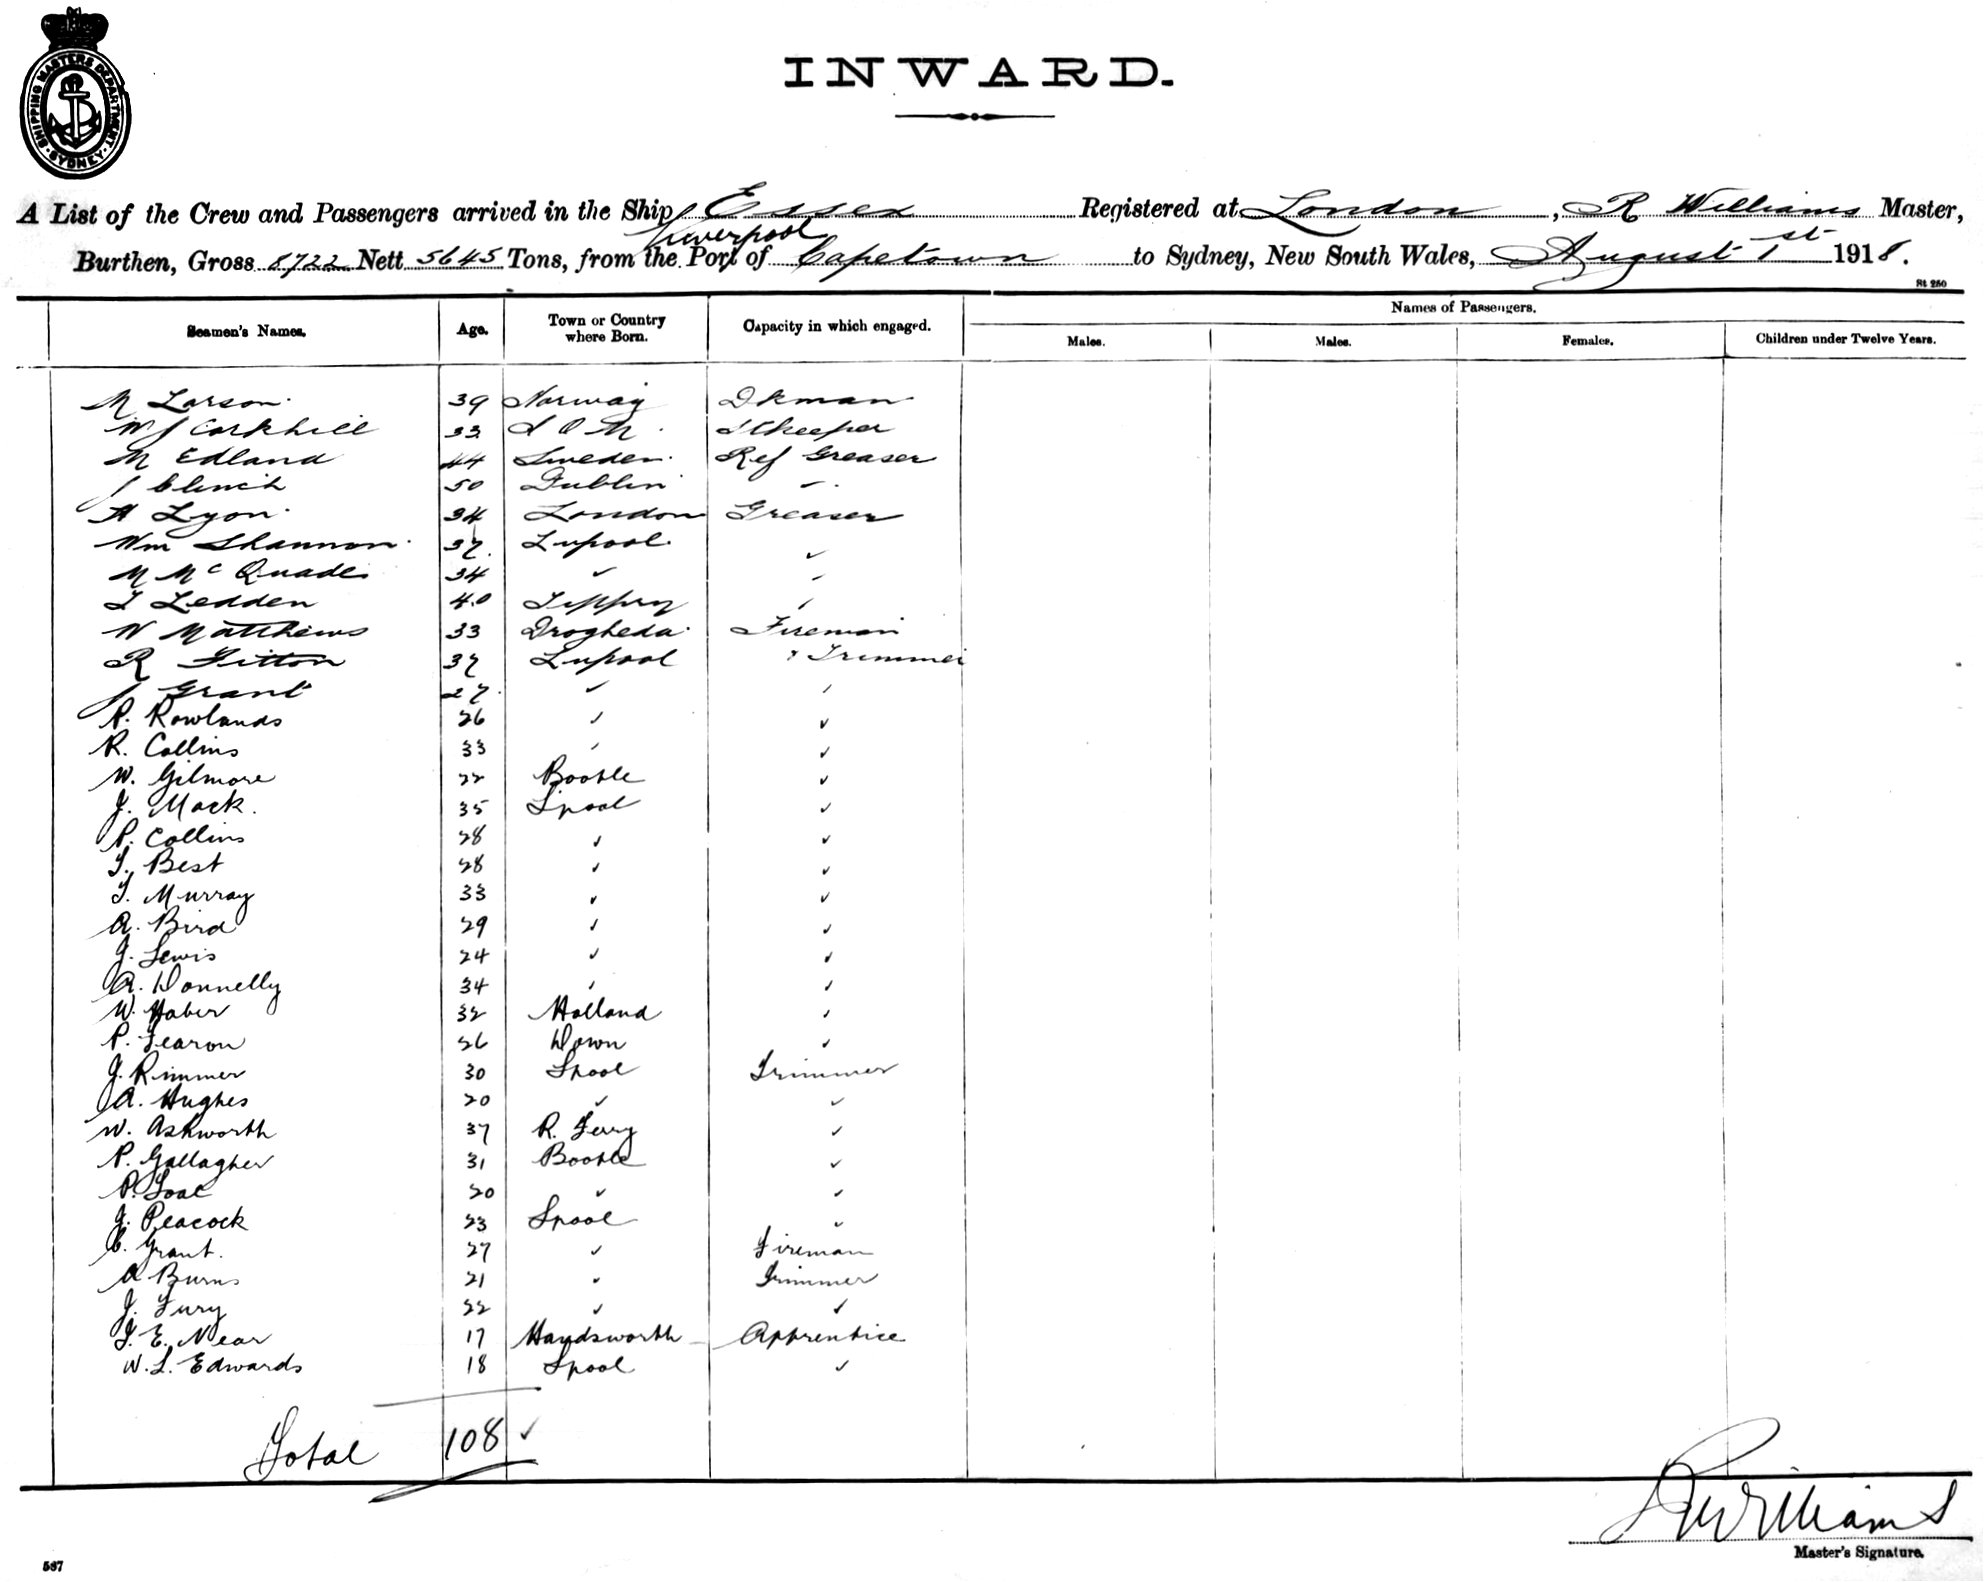 SHIPPING MASTERS DEPARTMENT · SYDNEY ·
INWARD.
A List of the Crew and Passengers arrived in the Ship Essex Registered at London, R Williams Master,
Liverpool
Burthen, Gross 8722 Nett 5645 Tons, from the Port of Capetown to Sydney, New South Wales, August 1st 1918.
St 250
Seamen's Names. Age. Town or Country where Born. Capacity in which engaged. Names of Passengers.
Males. Males. Females. Children under Twelve Years.
M Larson 39 Norway Dkman
W J Corkhill 33 I O M. Stkeeper
M Edland 44 Sweden Ref Greaser
J Clinch 50 Dublin "
A Lyon 34 London Greaser
Wm Shannon 37 Lvpool ✓
M McQuade 34 ✓ ✓
T Ledden 40 ✓
W Matthews 33 Drogheda Fireman
R Fitton 37 Lvpool & Trimmer
J Grant 27 ✓ ✓
R. Rowlands 26 ✓ ✓
R. Collins 33 ✓ ✓
W. Gilmore 22 Bootle ✓
J. Mack. 35 L'pool ✓
P. Collins 28 ✓ ✓
T. Best 28 ✓ ✓
T. Murray 33 ✓ ✓
A. Bird 29 ✓ ✓
J. Lewis 24 ✓ ✓
A. Donnelly 34 ✓ ✓
W. Haber 32 Holland ✓
P. Fearon 26 Down ✓
J. Rimmer 30 Lpool Trimmer
A. Hughes 20 ✓ ✓
W. Ashworth 37 R. Ferry ✓
P. Gallagher 31 Bootle ✓
P. 20 ✓ ✓
J. Peacock 23 Lpool ✓
C. Grant. 27 ✓ Fireman
A Burns 21 ✓ Trimmer
J. Fury 22 ✓ ✓
T. E. Near 17 Handsworth Apprentice
W. L. Edwards 18 Lpool ✓
Total 108 ✓
R Williams
Master's Signature.
567